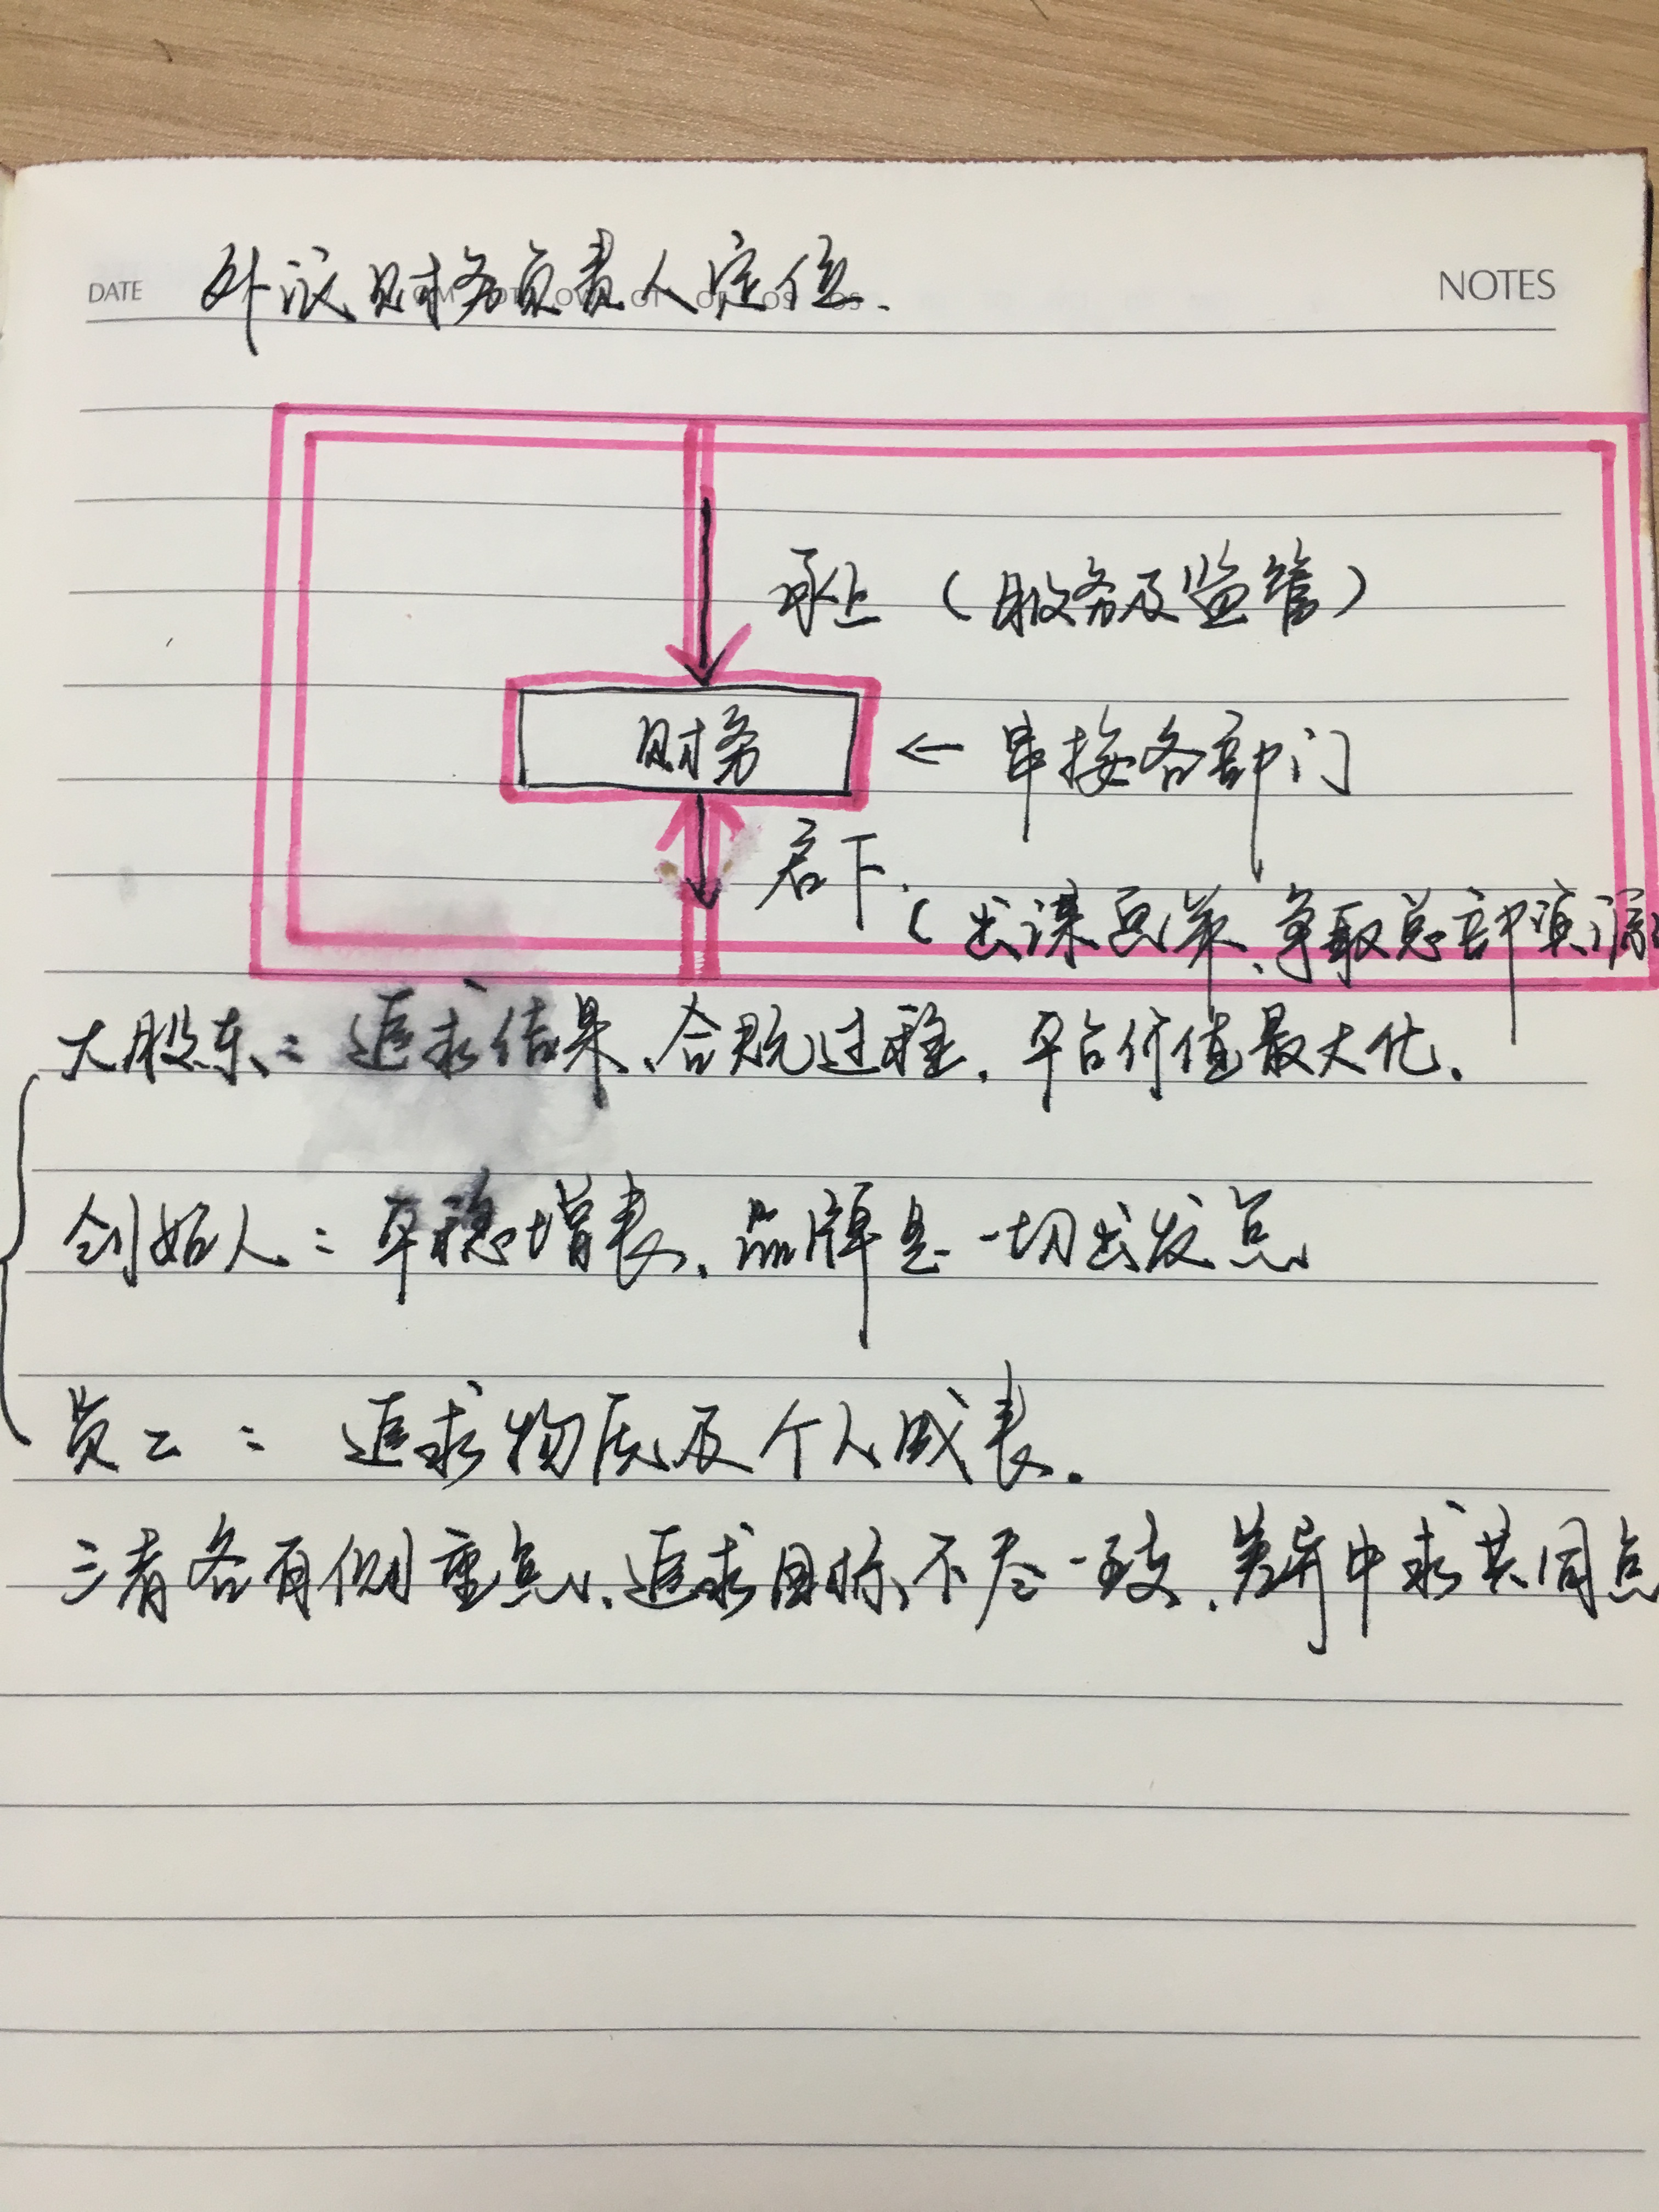 DATE 外派财务负责人定位. NOTES
承上（服务及监管）
财务 ← 串接各部门
启下.
（出谋画策、争取总部资源
大股东: 追求结果、合规过程. 平台价值最大化.
创始人: 平稳增长. 品牌是一切出发点
员工: 追求物质及个人成长.
三者各有侧重点、追求目标不尽一致. 差异中求共同点